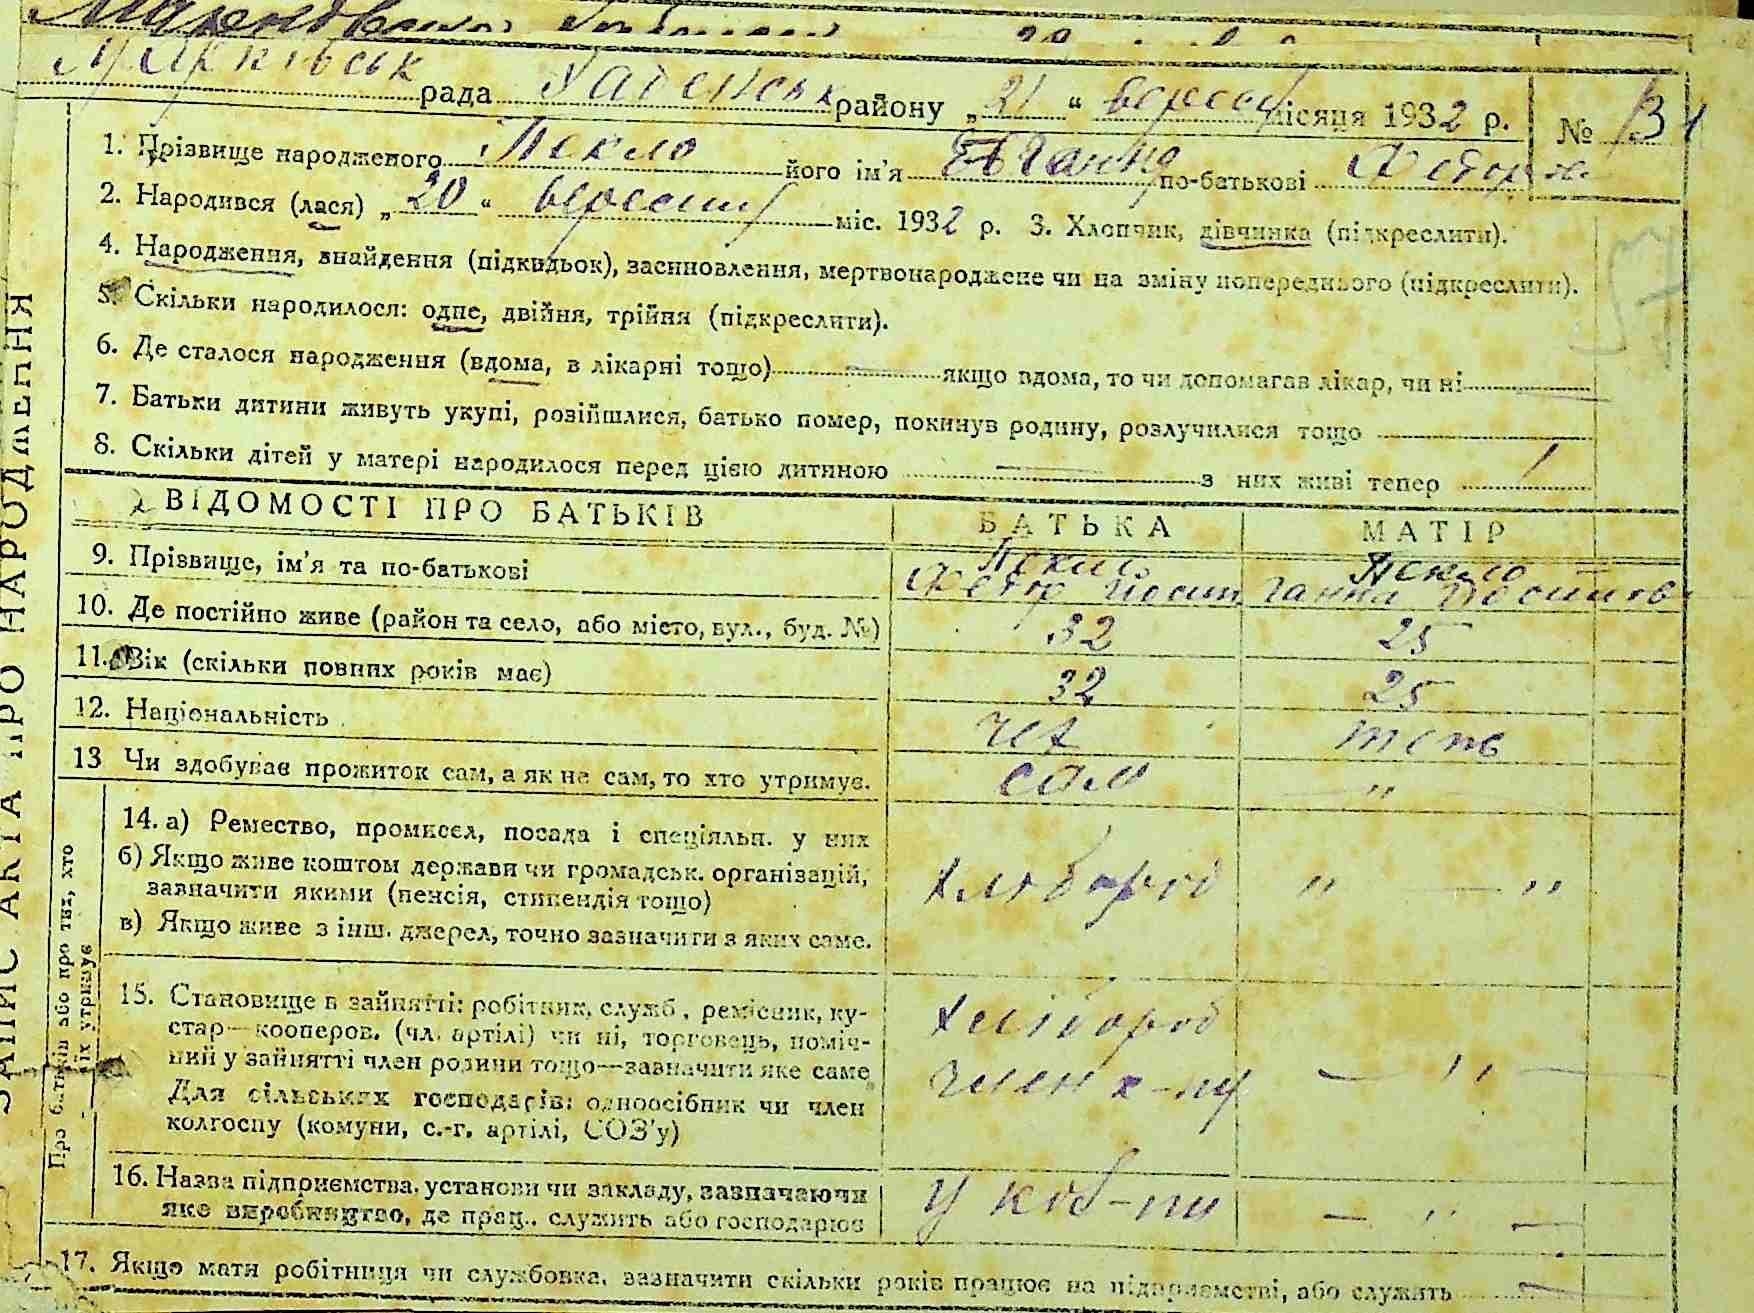 рада району „21“ вересня місяця 1932 р. №
1. Прізвище народженого Пекло його ім'я по-батькові
2. Народився (лася) „20“ вересня міс. 1932 р. 3. Хлопчик, дівчинка (підкреслити).
4. Народження, знайдення (підкидьок), засиновлення, мертвонароджене чи на зміну попереднього (підкреслити).
5. Скільки народилося: одне, двійня, трійня (підкреслити).
6. Де сталося народження (вдома, в лікарні тощо) якщо вдома, то чи допомагав лікар, чи ні
7. Батьки дитини живуть укупі, розійшлися, батько помер, покинув родину, розлучилися тощо
8. Скільки дітей у матері народилося перед цією дитиною з них живі тепер 1
ВІДОМОСТІ ПРО БАТЬКІВ БАТЬКА МАТІР
9. Прізвище, ім'я та по-батькові Пекло Пекло
Федор Йосип Ганна
10. Де постійно живе (район та село, або місто, вул., буд. №) 32 25
11. Вік (скільки повних років має) 32 25
12. Національність
13 Чи здобуває прожиток сам, а як не сам, то хто утримує. сам "
14. а) Ремество, промисел, посада і спеціяльн. у них
б) Якщо живе коштом держави чи громадськ. організацій,
зазначити якими (пенсія, стипендія тощо) хлібороб " — "
в) Якщо живе з інш. джерел, точно зазначити з яких саме.
15. Становище в зайнятті: робітник, служб., ремісник, ку-
стар—кооперов. (чл. артілі) чи ні, торговець, поміч- хлібороб
ний у зайнятті член родини тощо—зазначити яке саме член — " —
Для сільських господарів: одноосібник чи член
колгоспу (комуни, с.-г. артілі, СОЗ'у)
16. Назва підприємства, установи чи закладу, зазначаючи
яке виробництво, де прац., служить або господарює у — " —
17. Якщо мати робітниця чи службовка, зазначити скільки років працює на підприємстві, або служить —
ЗАПИС АКТА ПРО НАРОДЖЕННЯ
Про батьків або про тих, хто
їх утримує